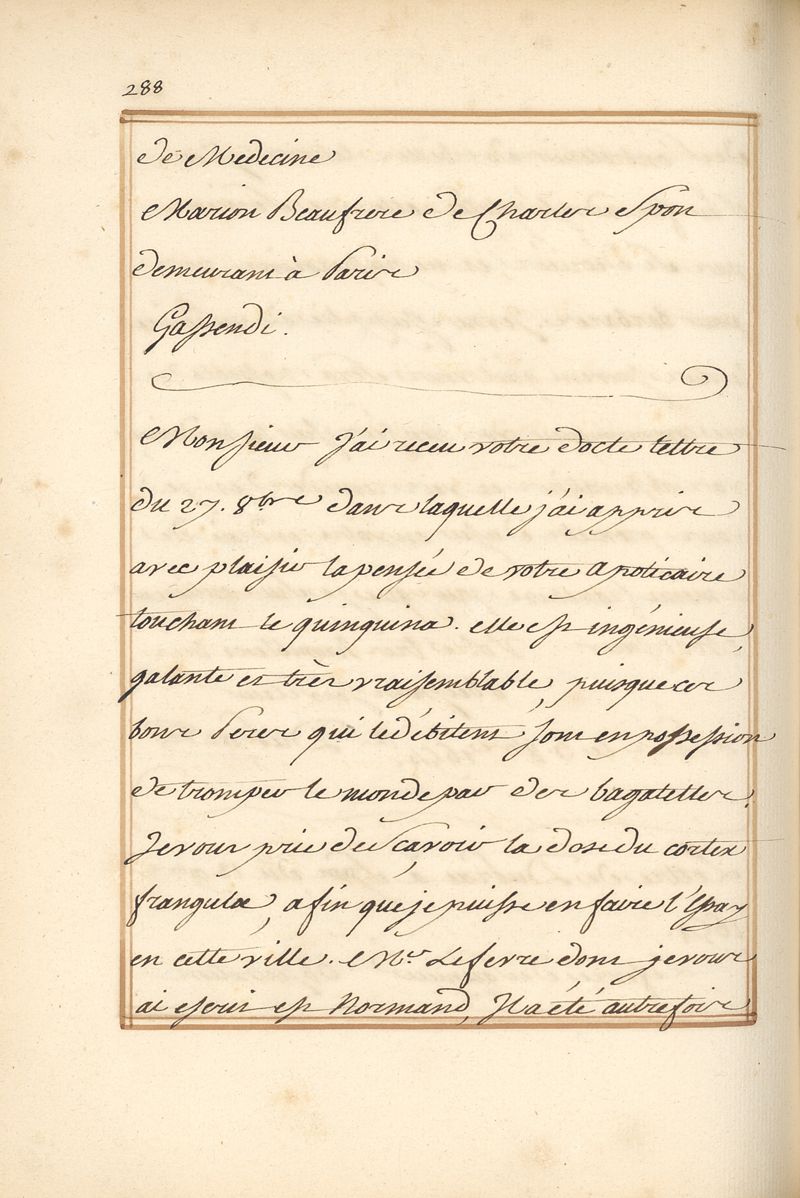 288
de Medecine
Marion Beaufrere de Charles Spon
demeurant à Paris
Gassendi.
Monsieur j'ai receu votre docte lettre
du 27. 8bre dans laquelle j'ai appris
avec plaisir la pensée de votre apoticaire
touchant le quinquina. elle est ingénieuse,
galante et très vraissemblable, puisque ces
bons Peres qui le débitent sont en possession
de tromper le monde par des bagatelles.
Je vous prie de scavoir la dose du cortex
frangulæ, afin que je puisse en faire l'essay
en cette ville. Mr. Lefevre dont je vous
ai escrit est Normand, Il a été autrefois